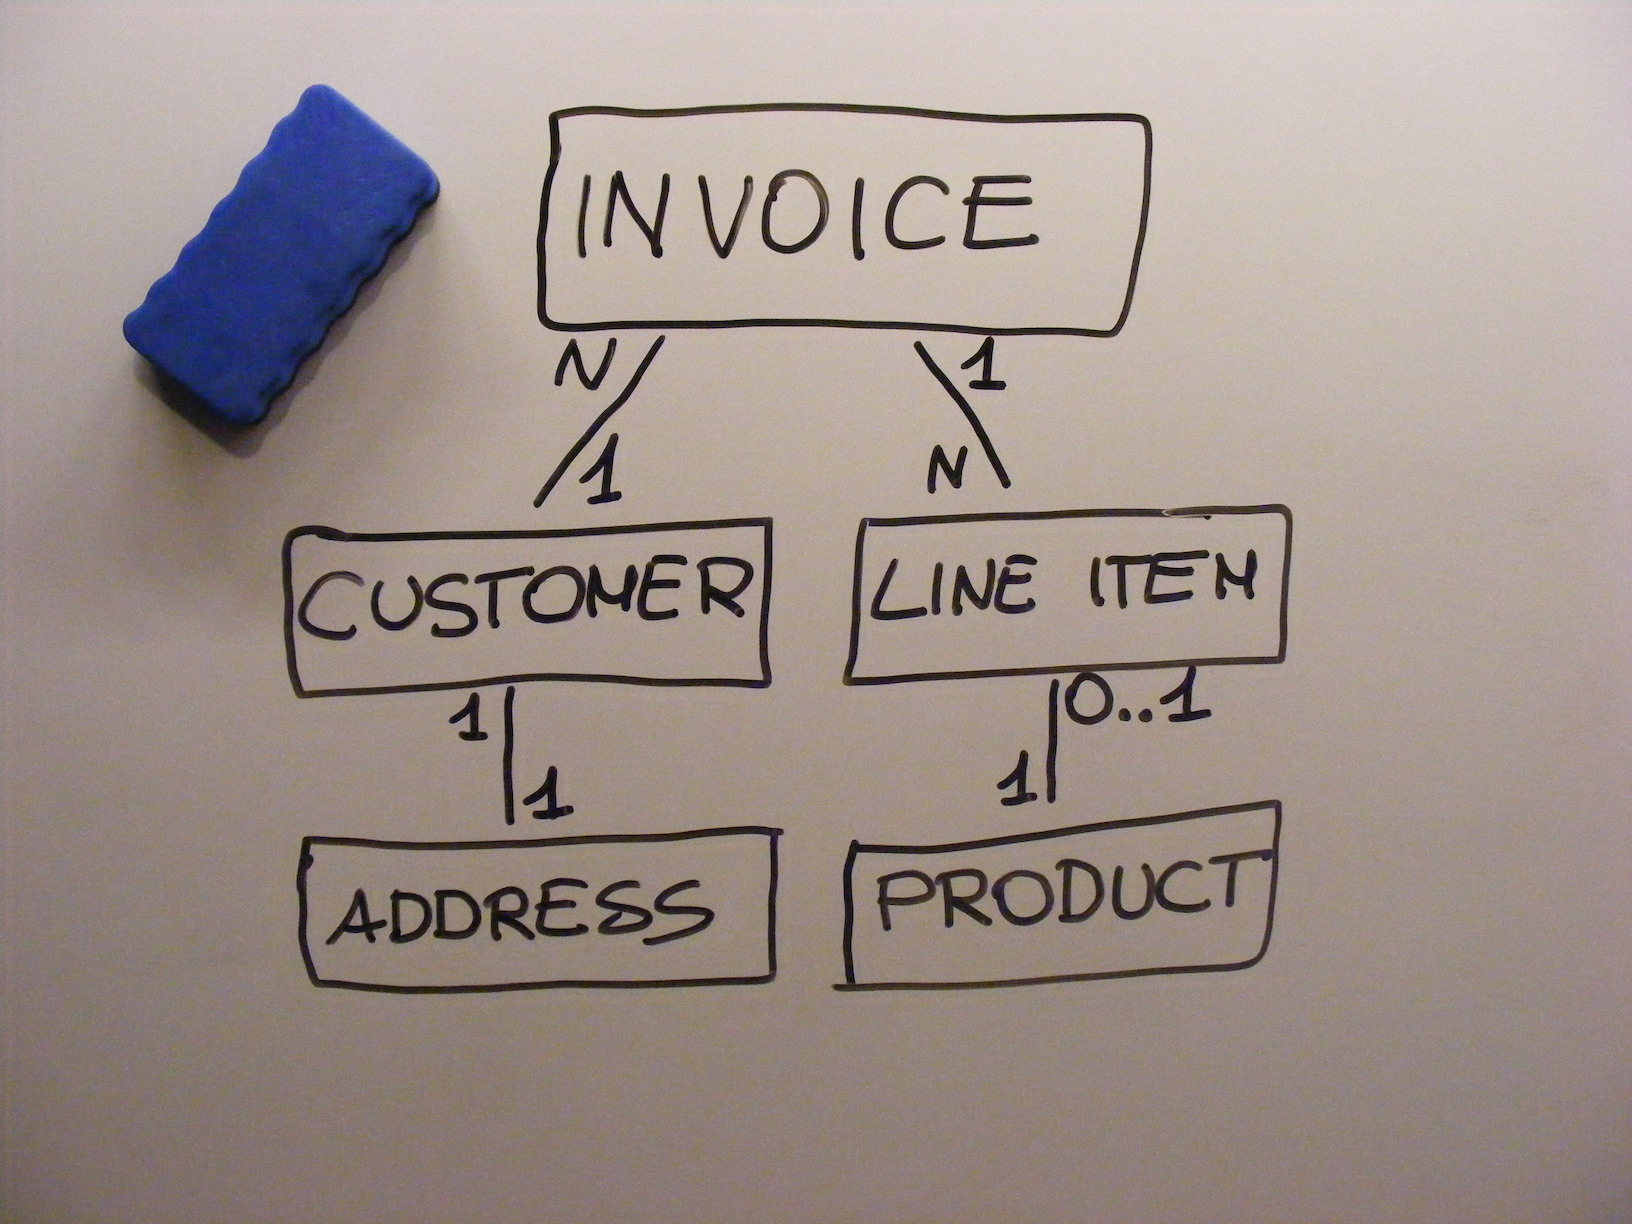 INVOICE
N 1
1 N
CUSTOMER
LINE ITEM
1 0..1
1 1
ADDRESS
PRODUCT